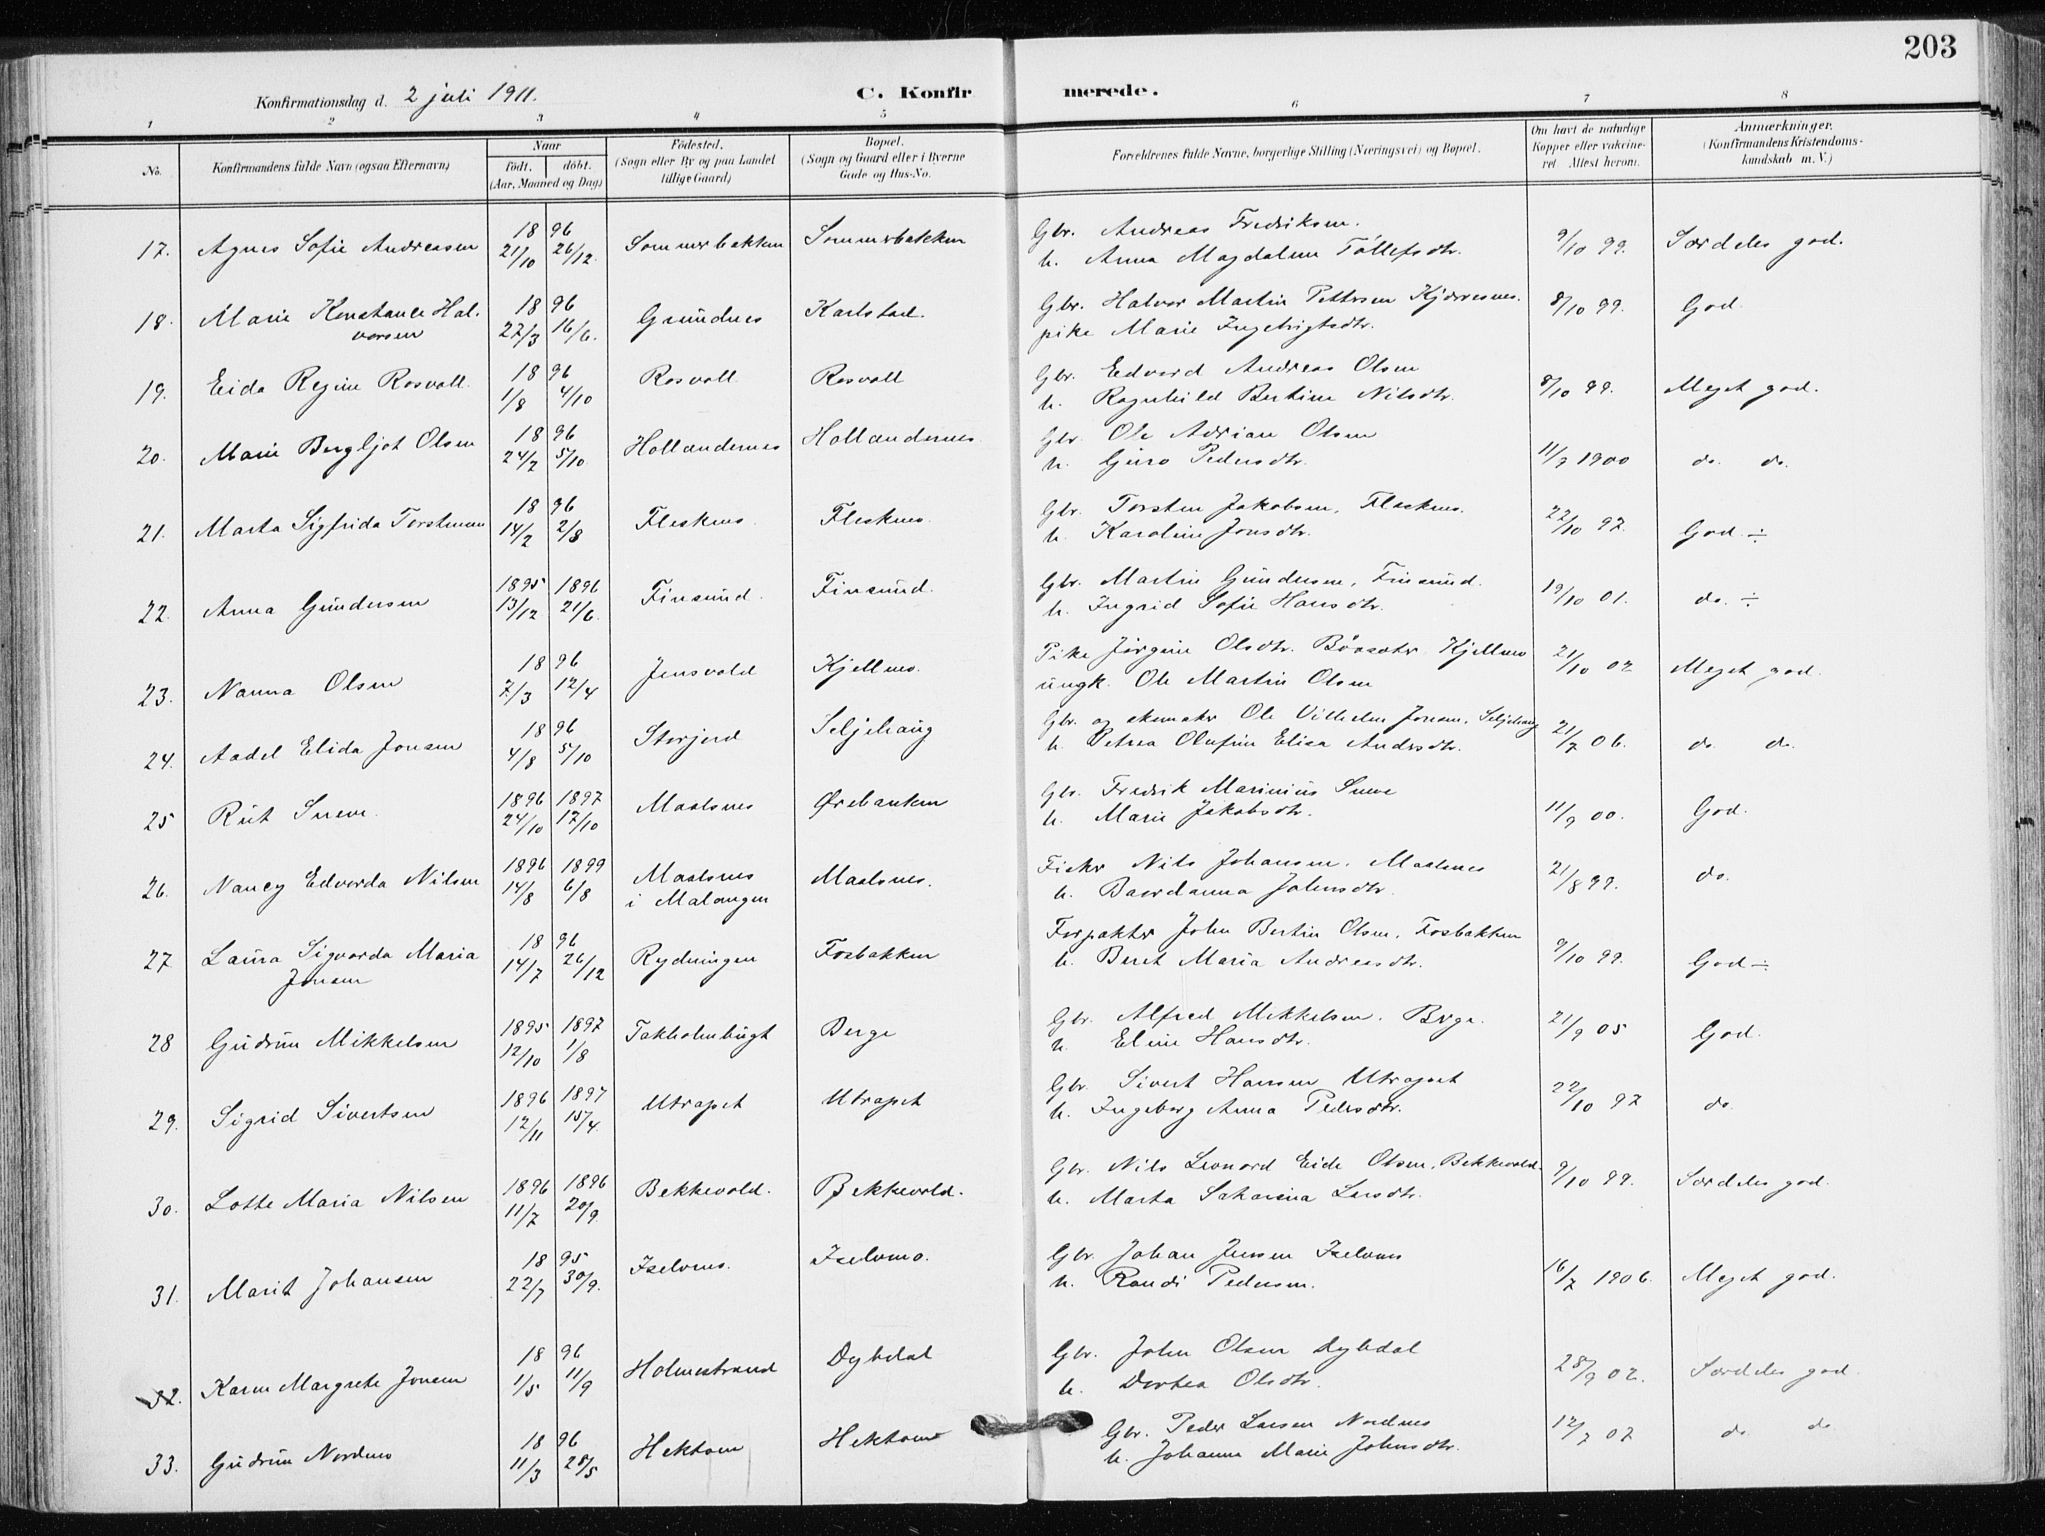 203
Konfirmationsdag d. 2 juli 1911.
C. Konfirmerede.
1 2 3 4 5 6 7 8
No.
Konfirmandens fulde Navn (ogsaa Efternavn)
Naar
födt. döbt.
(Aar, Maaned og Dag)
Födested.
(Sogn eller By og paa Landet
tillige Gaard)
Bopæl.
(Sogn og Gaard eller i Byerne
Gade og Hus-No.
Forældrenes fulde Navne, borgerlige Stilling (Næringsvei) og Bopæl.
Om havt de naturlige
Kopper eller vakcine-
ret Attest herom.
Anmærkninger.
(Konfirmandens Kristendoms-
kundskab m. V.)
17. Agnes Sofie Andreasen 18 96 21/10 26/12. Sommerbakken Sommerbakken Gbr. Andreas Fredriksen. 9/10 99. Særdeles god.
h. Anna Magdalena Tollefsdtr.
18. Marie Konstance Hal- 18 96 27/3 16/6. Grundnes Karlstad. Gbr. Halvor Martin Pettersen Kjerresnes. 8/10 99. God.
vorsen pike Marie Ingebrigtsdtr.
19. Eida Regine Rosvoll. 18 96 1/8 4/10 Rosvoll Rosvoll Gbr. Edvard Andreas Olsen 8/10 99. Meget god.
h. Ragnhild Bertine Nilsdtr.
20. Marie Bergljot Olsen 18 96 24/2 5/10. Hollandernes Hollandernes. Gbr. Ole Adrian Olsen 11/9 1900 do. do.
h. Guro Pedersdtr.
21. Marta Sigfrida Torstensen 18 96 14/2 2/8 Fleskenes. Fleskenes. Gbr. Torsten Jakobsen, Fleskenes. 22/10 97. God. ÷
h. Karoline Jonsdtr.
22. Anna Gundersen 1895 1896 13/12 21/6. Finsund. Finsund. Gbr. Martin Gundersen, Finsund. 19/10 01. do. ÷
h. Ingrid Sofie Hansdtr.
23. Nanna Olsen 18 96 7/3 12/4 Jensvold Kjellnes. Pike Jørgine Olsdtr. Kjellnes 21/10 02 Meget god.
ungk. Ole Martin Olsen
24. Aadel Elida Jensen 18 96 4/8 5/10 Storjord Seljehaug Gbr. og skomaker Ole Vilhelm Jensen, Seljehaug 21/7 06. do. do.
h. Petrea Olufine Elisa Andersdtr.
25 Rut Sneve. 1896 1897 24/10 17/10 Maalsnes Ørebanken Gbr. Fredrik Marinius Sneve 11/9 00. God.
h. Marie Jakobsdtr.
26. Nancy Edvarda Nilsen 1896 1899 14/8 6/8 Maalsnes Maalsnes. Fisker Nils Johansen, Maalsnes 21/8 99. do.
i Malangen h. Baardanna Johnsdtr.
27. Laura Sigvarda Maria 18 96 14/7 26/12 Rydningen Fosbakken Forpakter John Bertin Olsen, Fosbakken 9/10 99. God ÷
Jensen h. Beret Maria Andreasdtr.
28 Gudrun Mikkelsen 1895 1897 12/10 1/8 Takholmbugt Berge Gbr. Alfred Mikkelsen. Berge. 21/9 05 God.
h. Eline Hansdtr.
29. Sigrid Sivertsen 1896 1897 12/11 15/4. Utrapet Utrapet Gbr. Sivert Hansen Utrapet 22/10 97 do.
h. Ingeborg Anna Pedersdtr.
30. Lotte Maria Nilsen 1896 1896 11/7 20/9. Bekkevold. Bekkevold. Gbr. Nils Leonard Eide Olsen, Bekkevold. 9/10 99. Særdeles god.
h. Marta Sakarina Larsdtr.
31. Marit Johansen 18 95 22/7 30/9. Iselvmo. Iselvmo. Gbr. Johan Jensen Iselvmo 16/7 1906. Meget god.
h. Randi Pedersen.
32. Karen Margrete Jonsen 18 96 1/5 11/9 Holmestrand Dybdal Gbr. John Olsen Dybdal 28/9 02. Særdeles god.
h. Dortea Olsdtr.
33. Gudrun Nordnes 18 96 11/3 28/5 Hektoen Hektoen Gbr. Peder Larsen Nordnes 12/7 07 do do
h. Johanna Marie Johnsdtr.